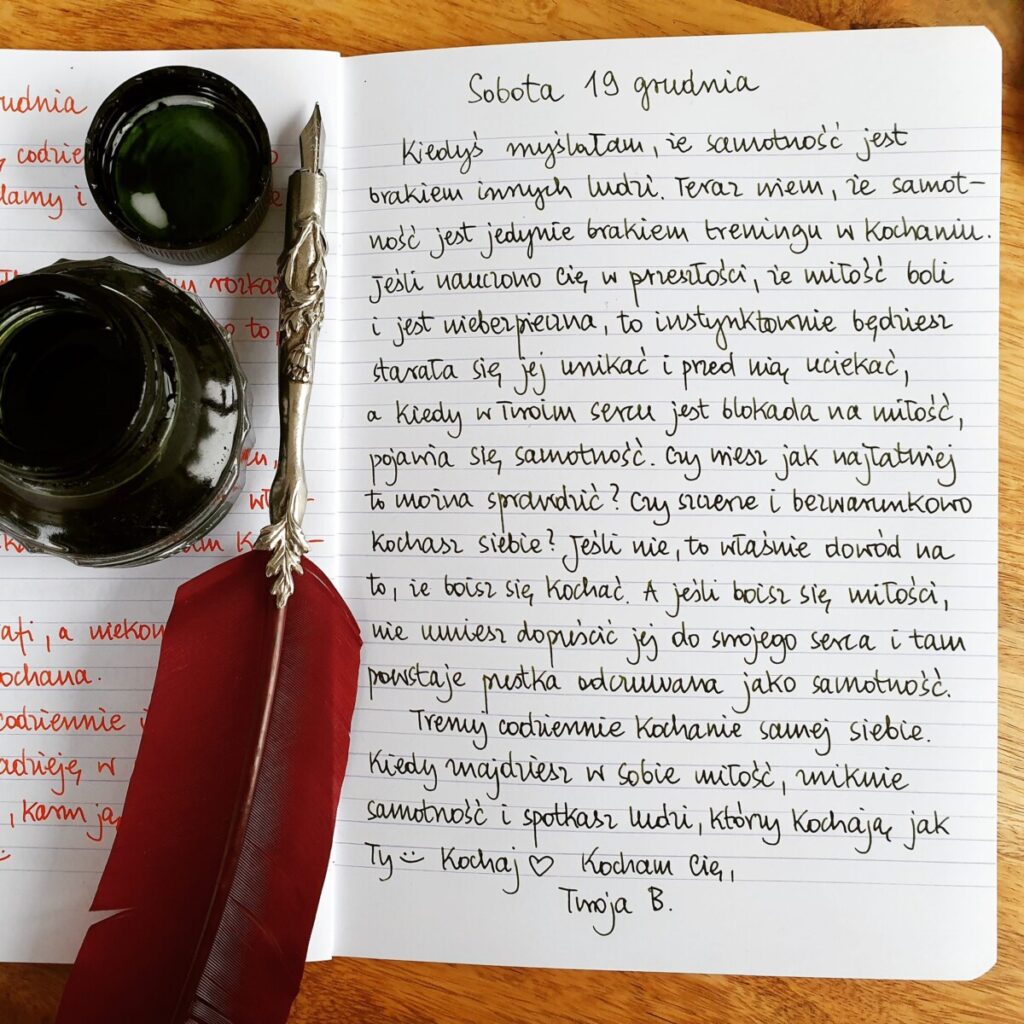 rudnia
codzie
lamy i
rozka
to,
afi, a niekon
ochana.
codziennie i
adzieję w
, karm ją
Sobota 19 grudnia
Kiedyś myślałam, że samotność jest
brakiem innych ludzi. Teraz wiem, że samot-
ność jest jedynie brakiem treningu w kochaniu.
Jeśli nauczono Cię w przeszłości, że miłość boli
i jest niebezpieczna, to instynktownie będziesz
starała się jej unikać i przed nią uciekać,
a kiedy w Twoim sercu jest blokada na miłość,
pojawia się samotność. Czy wiesz jak najłatwiej
to można sprawdzić? Czy szczerze i bezwarunkowo
kochasz siebie? Jeśli nie, to właśnie dowód na
to, że boisz się kochać. A jeśli boisz się miłości,
nie umiesz dopuścić jej do swojego serca i tam
powstaje pustka odczuwana jako samotność.
Trenuj codziennie kochanie samej siebie.
Kiedy znajdziesz w sobie miłość, zniknie
samotność i spotkasz ludzi, którzy kochają jak
Ty :) Kochaj ♡ Kocham Cię,
Twoja B.